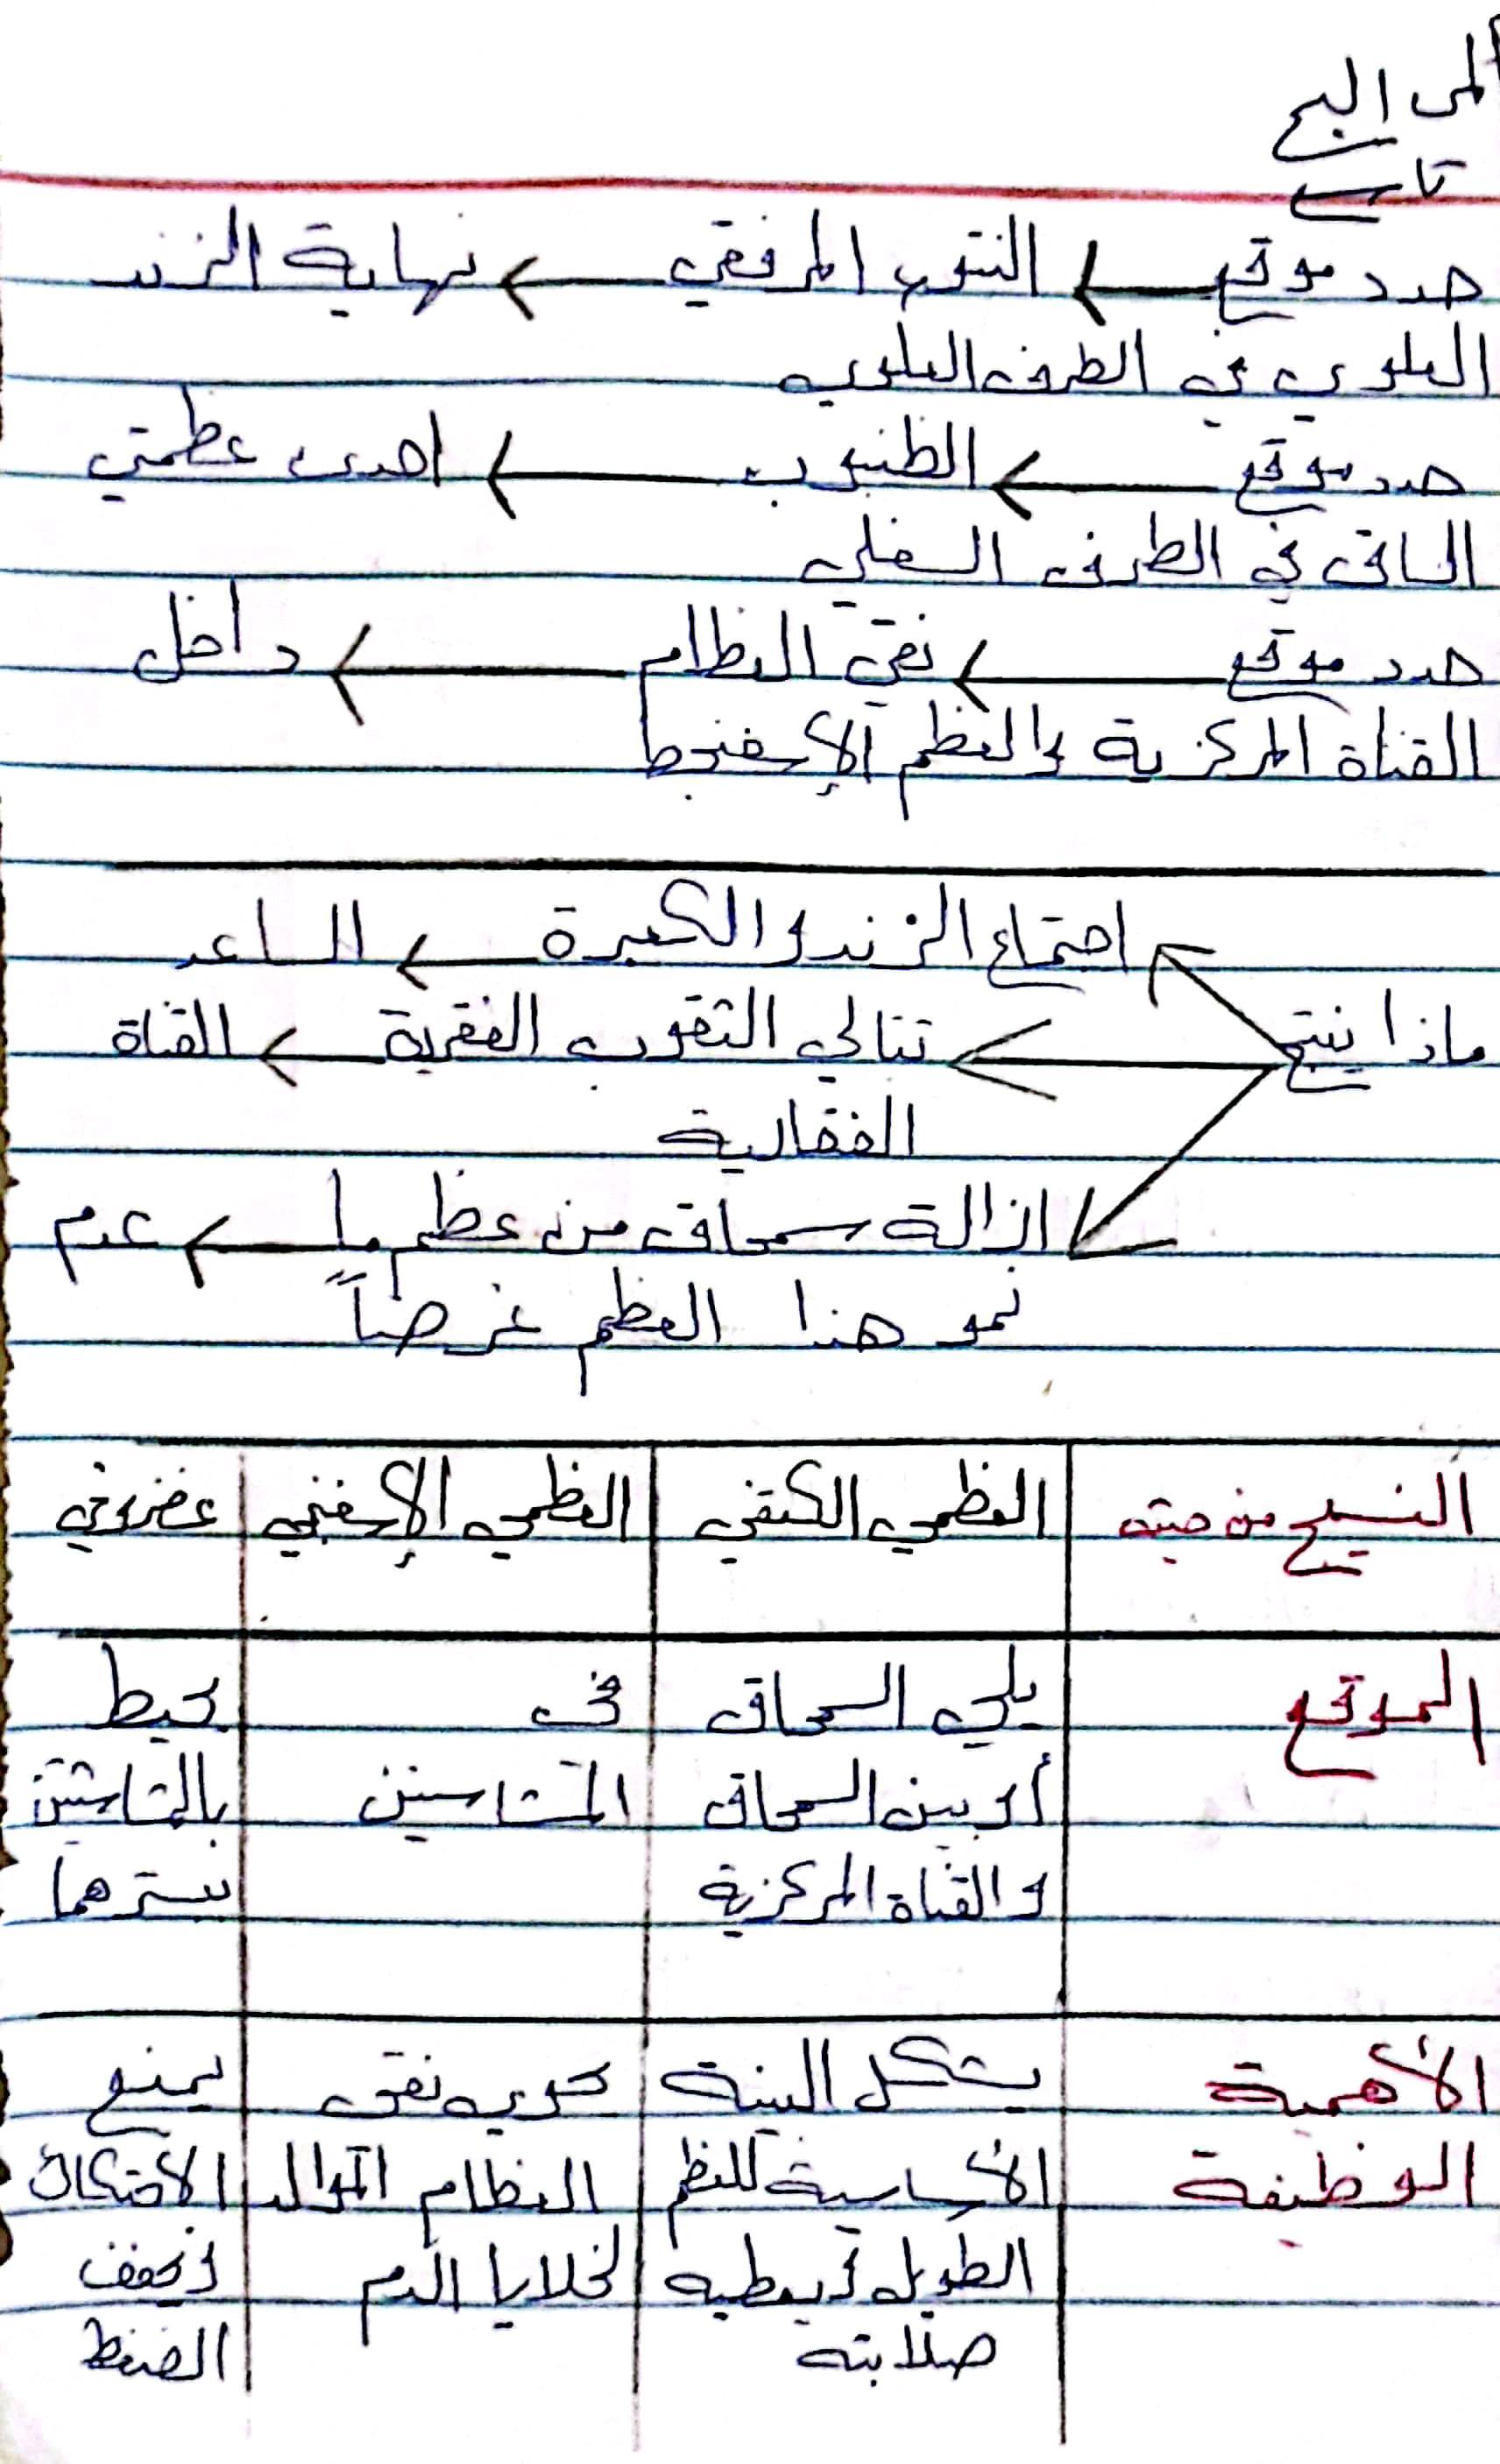 حدد موقع ← النتوء المرفقي ← نهاية الزند
العلوي في الطرف العلوي
حدد موقع ← الظنبوب ← احدى عظمتي
الساق في الطرف السفلي
حدد موقع ← نقي العظام ← داخل
القناة المركزية والعظم الإسفنجط
اجتماع الزند والكعبرة ← الساعد
ماذا ينتج ← تتالي الثقوب الفقرية ← القناة
الفقارية
ازالة سمحاق من عظم ما ← عدم
نمو هذا العظم عرضاً
النسيج من حيث العظمي الكثيف العظمي الإسفنجي غضروفي
الموقع يلي السمحاق في يحيط
أو بين السمحاق المشاشتين بالمشاشتين
والقناة المركزية يسترهما
الأهمية يشكل البنية يحوي نقي يمنع
الوظيفة الأساسية للعظم العظام المولد الاحتكاك
الطويل ويعطيه لخلايا الدم ويخفف
صلابته الضغط